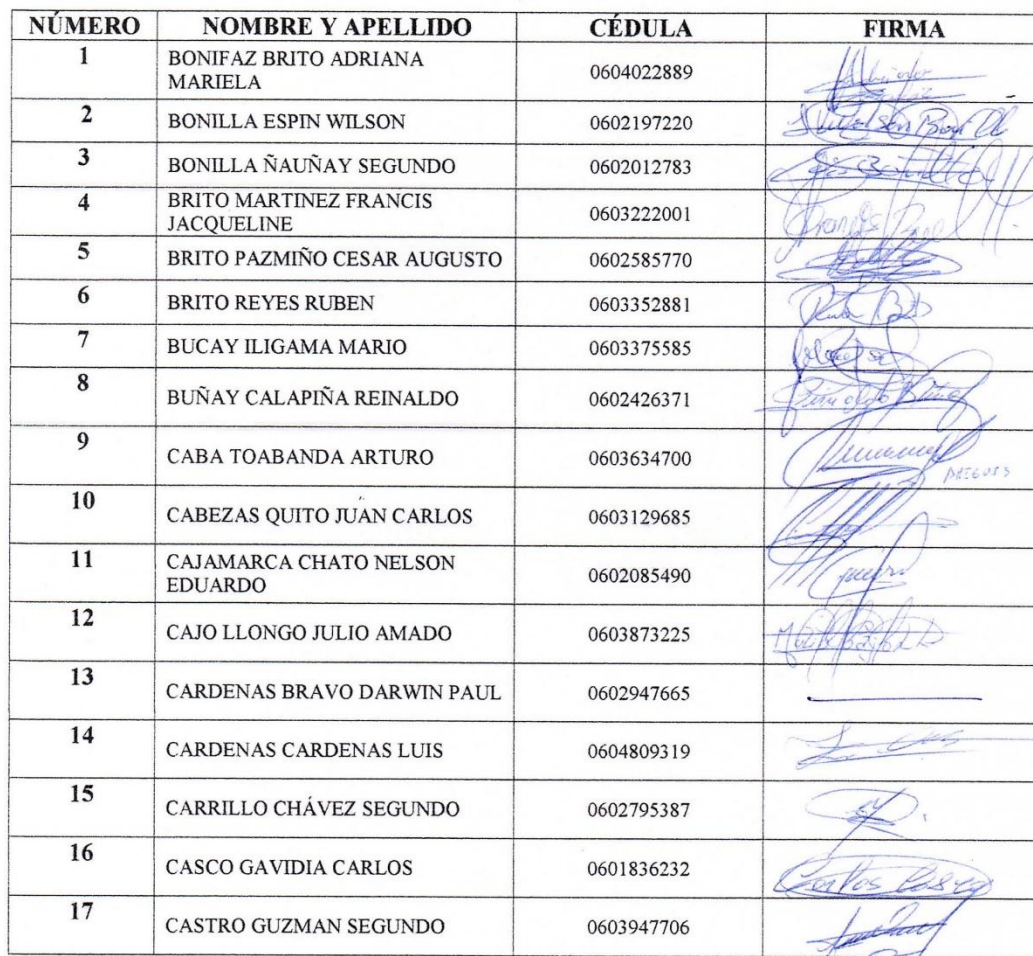 NÚMERO NOMBRE Y APELLIDO CÉDULA FIRMA
1 BONIFAZ BRITO ADRIANA
MARIELA 0604022889
2 BONILLA ESPIN WILSON 0602197220
3 BONILLA ÑAUÑAY SEGUNDO 0602012783
4 BRITO MARTINEZ FRANCIS
JACQUELINE 0603222001
5 BRITO PAZMIÑO CESAR AUGUSTO 0602585770
6 BRITO REYES RUBEN 0603352881
7 BUCAY ILIGAMA MARIO 0603375585
8 BUÑAY CALAPIÑA REINALDO 0602426371
9 CABA TOABANDA ARTURO 0603634700
10 CABEZAS QUITO JUAN CARLOS 0603129685
11 CAJAMARCA CHATO NELSON
EDUARDO 0602085490
12 CAJO LLONGO JULIO AMADO 0603873225
13 CARDENAS BRAVO DARWIN PAUL 0602947665
14 CARDENAS CARDENAS LUIS 0604809319
15 CARRILLO CHÁVEZ SEGUNDO 0602795387
16 CASCO GAVIDIA CARLOS 0601836232 Carlos
17 CASTRO GUZMAN SEGUNDO 0603947706